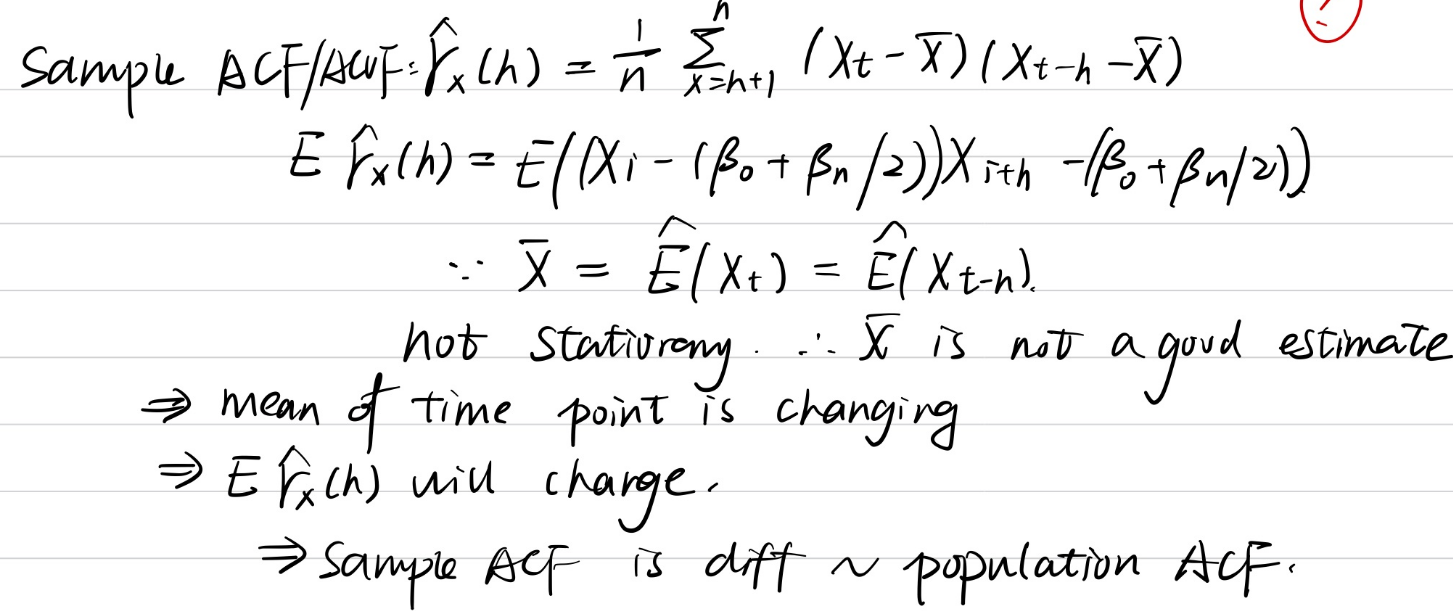 Sample ACF/ACVF: γ̂ₓ(h) = 1/n Σ_{x=h+1}^{n} (Xt - X̄)(Xt-h - X̄)
E γ̂ₓ(h) = E((Xi - (β₀ + βn/2))Xi+h - (β₀ + βn/2))
∵ X̄ = Ê(Xt) = Ê(Xt-h).
not stationary. ∴ X̄ is not a good estimate
⇒ mean of time point is changing
⇒ E γ̂ₓ(h) will change.
⇒ Sample ACF is diff ~ population ACF.